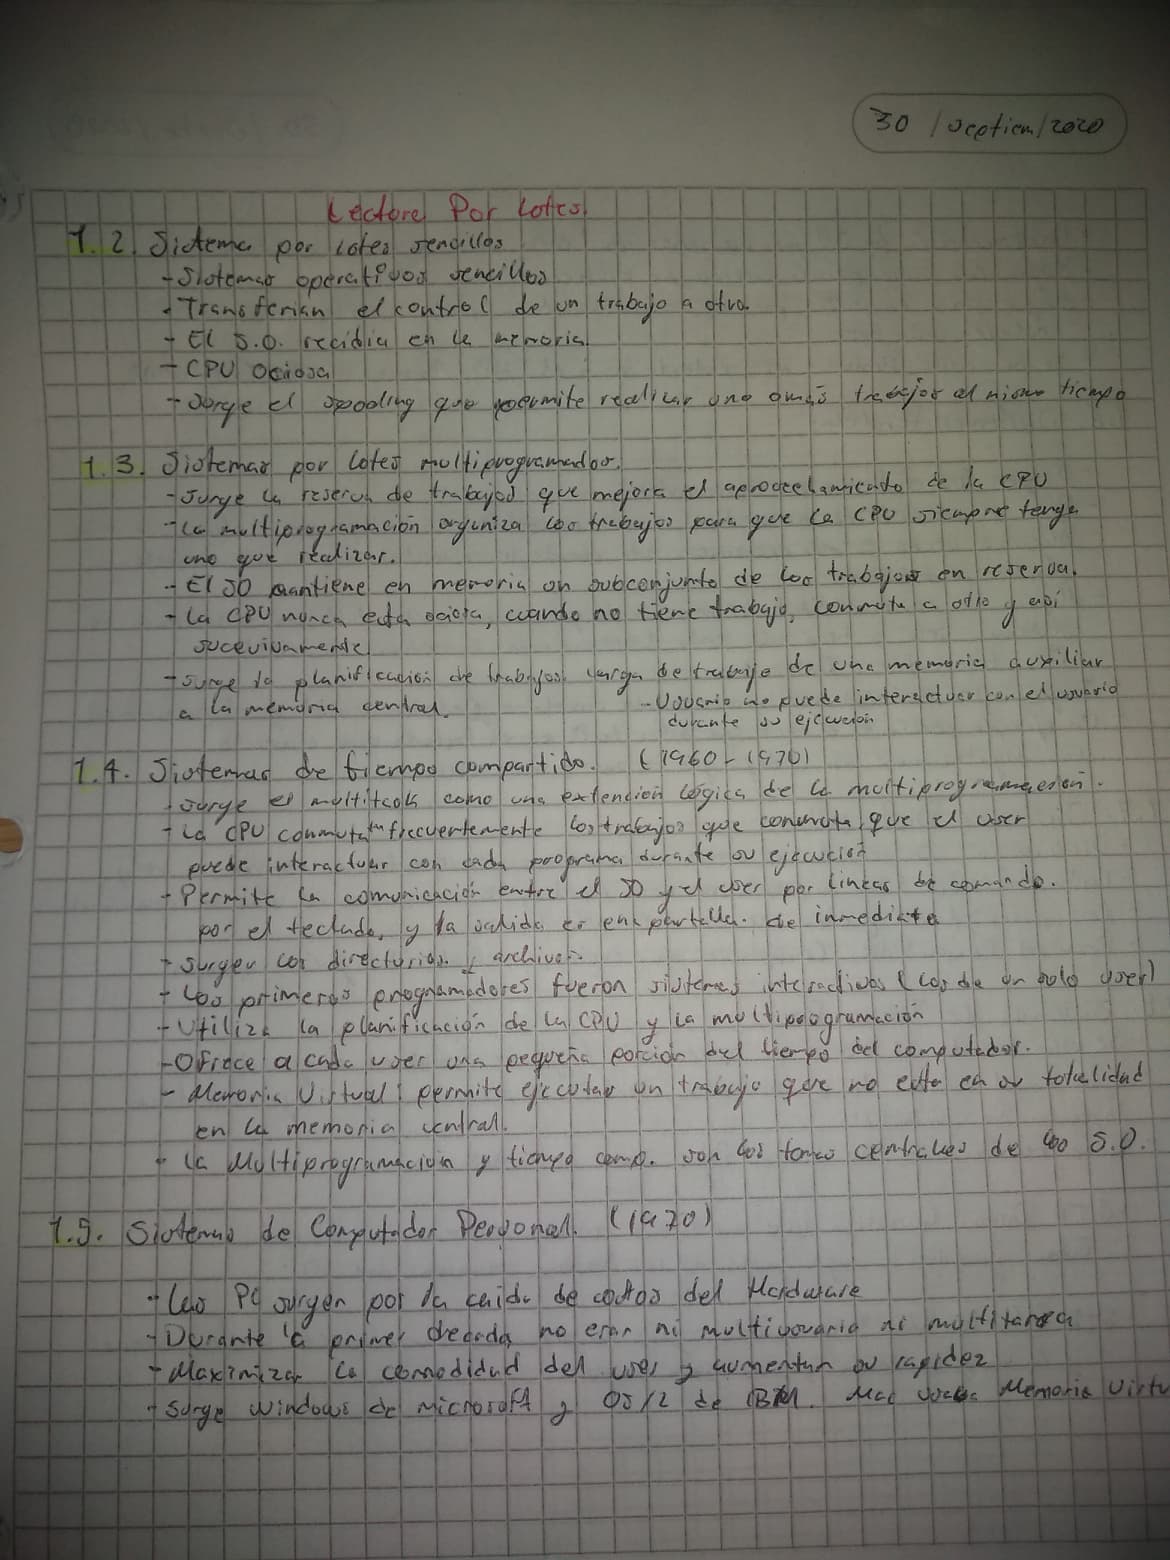 30 / septiem/2020
Lectura Por Lotes.
1.2. Sistema por lotes sencillos
- Sistemas operativos sencillos
- Transferian el control de un trabajo a otro.
- El S.O. recidia en la memoria
- CPU Ociosa
- Surge el spooling que permite realizar uno o más trabajos al mismo tiempo
1.3. Sistemas por lotes multiprogramados.
- Surge la reserva de trabajos que mejora el aprovechamiento de la CPU
- La multiprogramación organiza los trabajos para que la CPU siempre tenga
uno que realizar.
- El SO mantiene en memoria un subconjunto de los trabajos en reserva.
- La CPU nunca esta ociosa, cuando no tiene trabajo, conmuta a otro y asi
sucevivamente
- Surge la planificación de trabajos carga de trabajo de una memoria auxiliar
a la memoria central.
- Usuario no puede interactuar con el usuario
durante su ejecución
1.4. Sistemas de tiempo compartido. (1960 - 1970)
- Surge el multitask como una extención lógica de la multiprogramación.
- La CPU conmuta tan frecuertemente los trabajos que conmuta, que el user
puede interactuar con cada programa durante su ejecución
- Permite la comunicación entre el SO y el user por lineas de comando.
por el teclado, y la salida es en pantalla. de inmediato
- Surgen los directorios y archivos.
- Los primeros programadores fueron sistemas interactivos (los de un solo user)
- Utiliza la planificación de la CPU y la multiprogramación
- Ofrece a cada user una pequeña porción del tiempo del computador.
- Memoria Virtual: permite ejecutar un trabajo que no este en su totalidad
en la memoria central.
- La Multiprogramación y tiempo comp. son los temas centrales de los S.O.
1.5. Sistemas de Computador Personal. (1970)
- Las PC surgen por la caida de costos del Hardware
- Durante la primer decada, no eran ni multiusuario ni multitarea
- Maximizar la comodidad del user y aumentan su rapidez
- Surge Windows de Microsoft y OS/2 de IBM. Mac Memoria Virtu